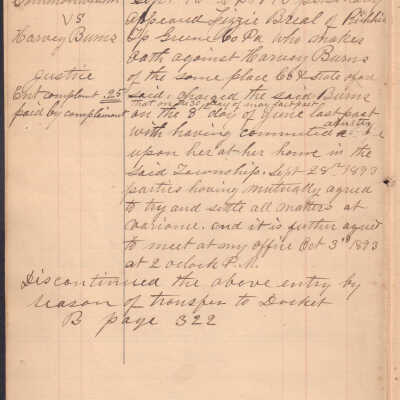 Commonwealth
VS
Harvey Burns
Justice
Ent complaint .25
paid by complainant
appeared Lizzie Breal of Richhill
Tp Greene Co Pa who makes
oath against Harvey Burns
of the same place Co & State afore
said, charged the said Burns
that on the 30 day of may last past
on the 3 day of June last past
with having committed a
upon her at her home in the
Said Township. Sept 28th 1893
parties having mutually agreed
to try and settle all matters at
variance. and it is further agreed
to meet at my office Oct 3rd 1893
at 2 oclock P.M.
Discontinued the above entry by
reason of transfer to Docket
B page 322